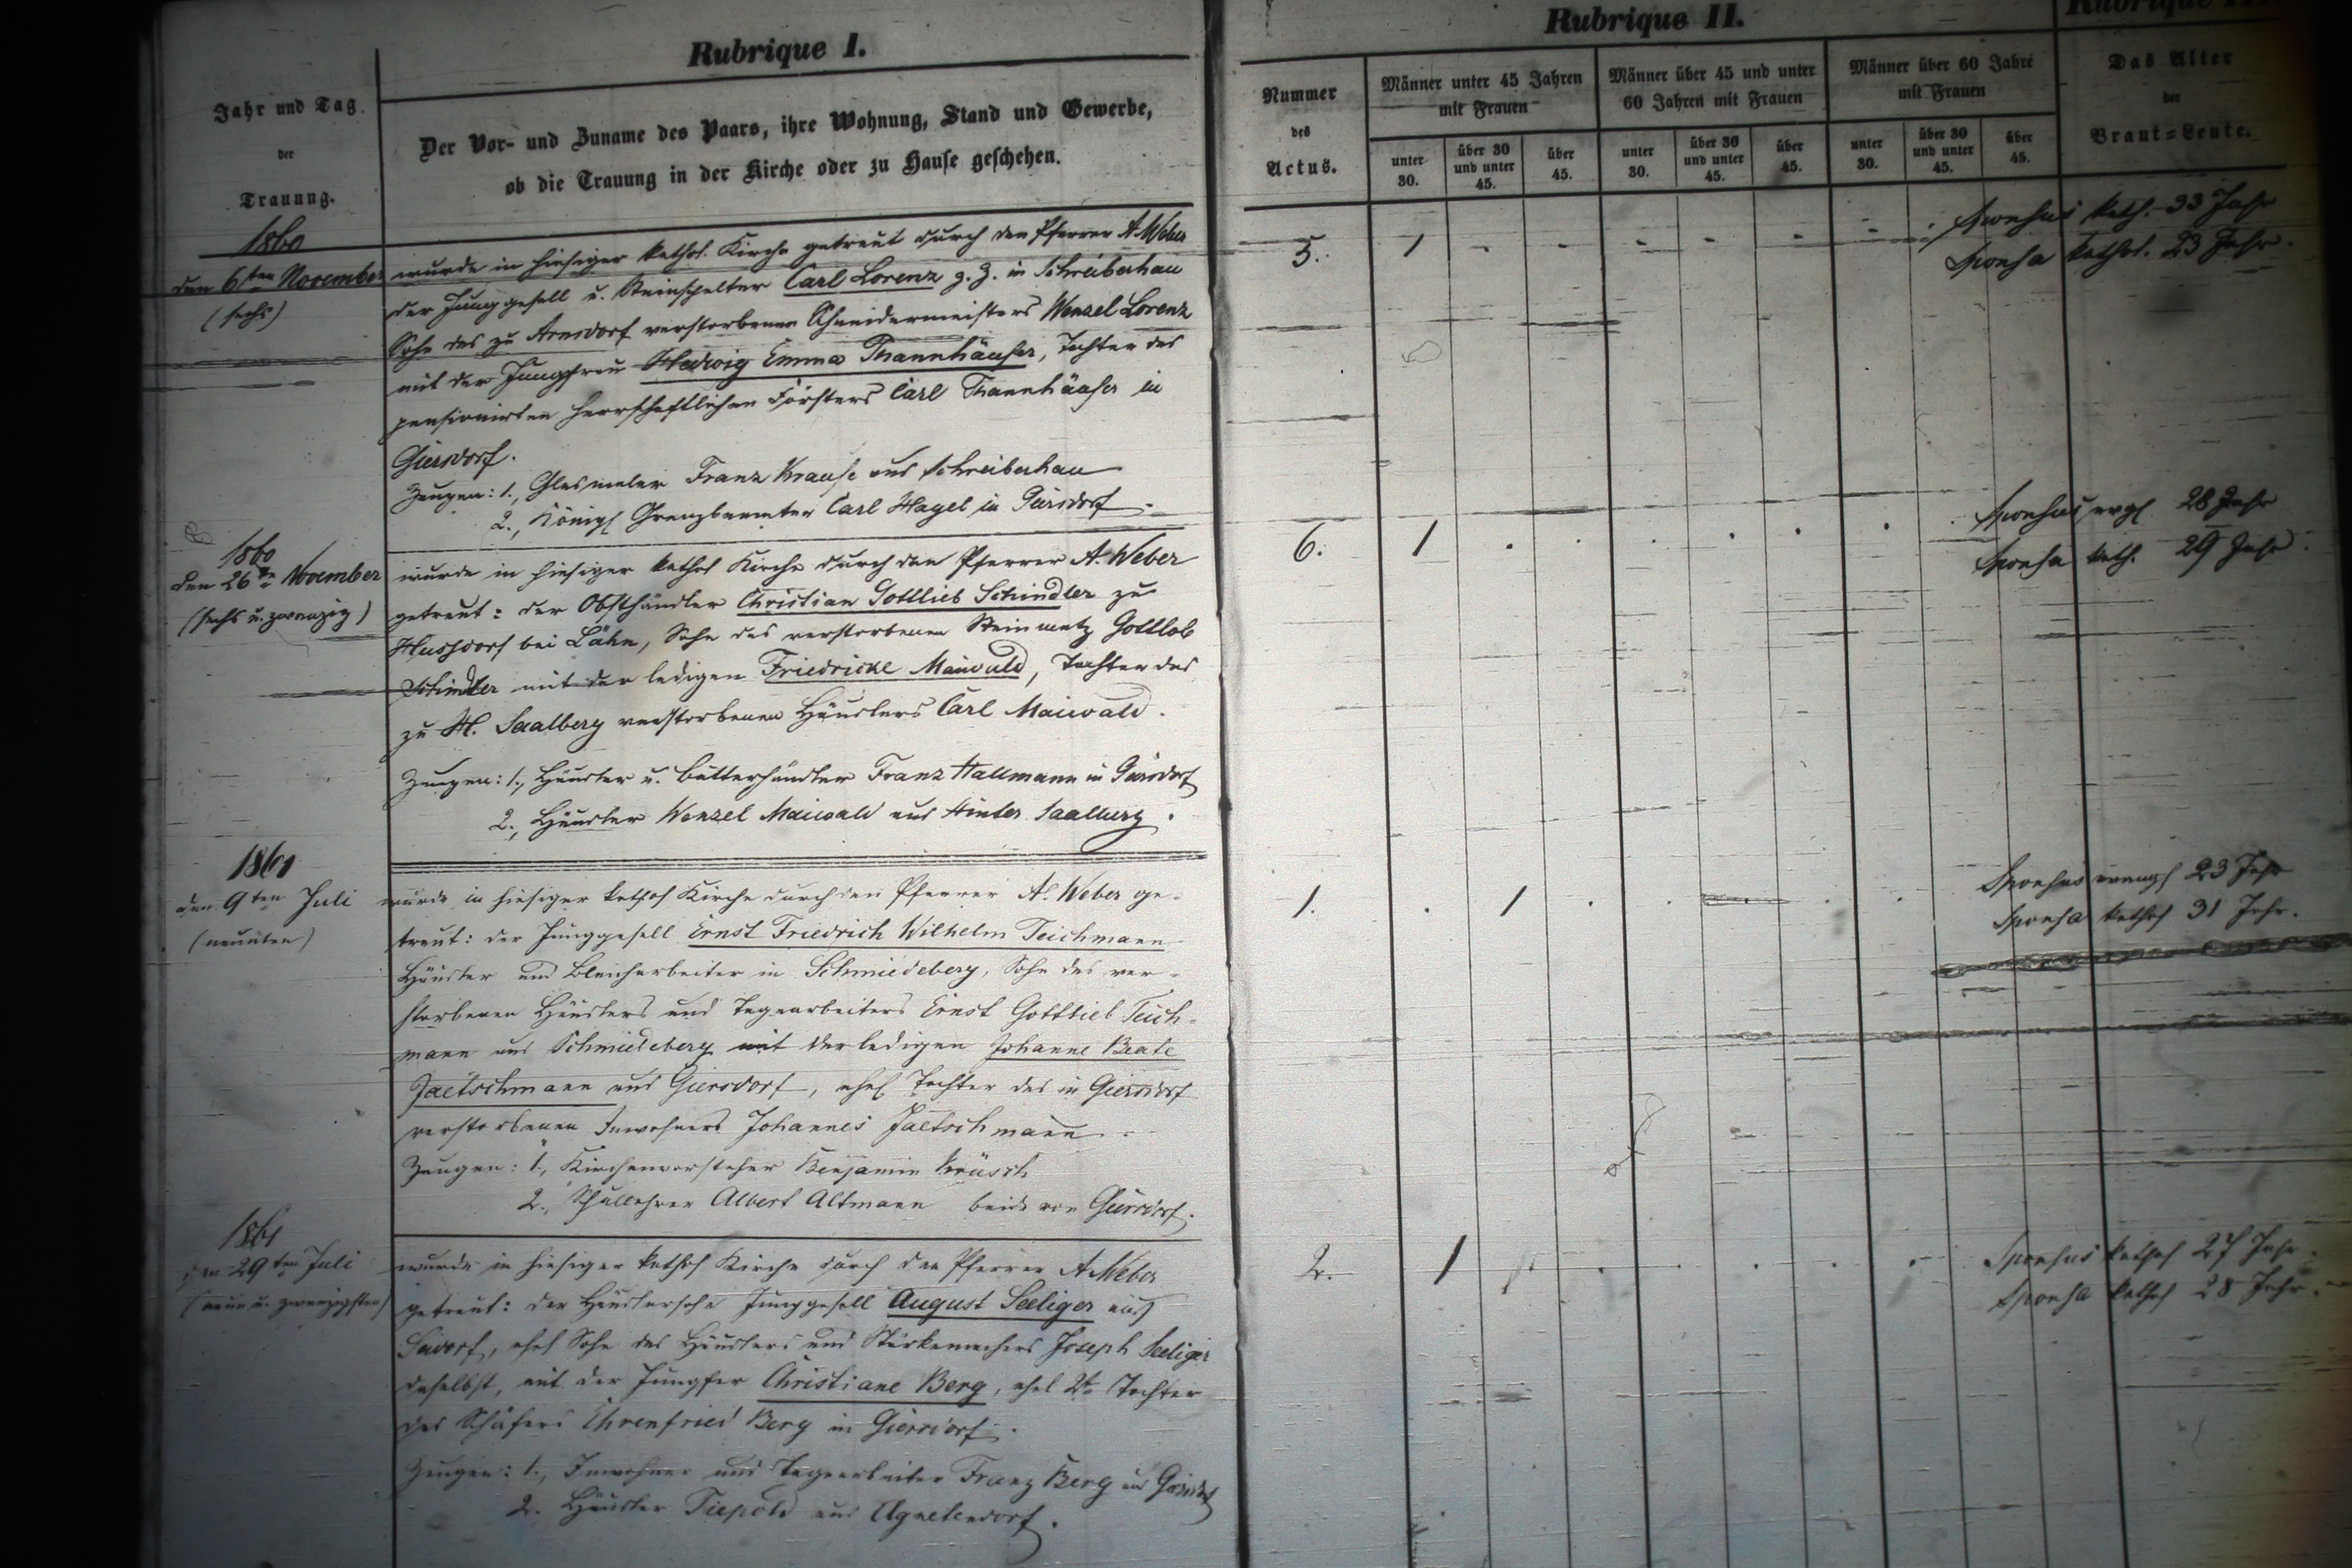 Rubrique I.
Jahr und Tag
der
Trauung.
Der Vor- und Zuname des Paars, ihre Wohnung, Stand und Gewerbe,
ob die Trauung in der Kirche oder zu Hause geschehen.
1860
den 6ten November
(sechs)
wurde in hiesiger kathol. Kirche getraut durch den Pfarrer A. Weber
der Junggesell u. Steinspalter Carl Lorenz z. Z. in Schreiberhau
Sohn des zu Arnsdorf verstorbenen Schneidermeisters Wenzel Lorenz
mit der Jungfrau Hedwig Emma Thannhäuser, Tochter des
pensionirten herrschaftlichen Försters Carl Thannhäuser in
Giersdorf.
Zeugen: 1., Glasmaler Franz Krause aus Schreiberhau
2., Königl Grenzbeamter Carl Hagel in Giersdorf.
1860
den 26ten November
(sechs u. zwanzig)
wurde in hiesiger kathol Kirche durch den Pfarrer A. Weber
getraut: der Obsthändler Christian Gottlieb Schindler zu
Hussdorf bei Lähn, Sohn des verstorbenen Steinmetz Gottlob
Schindler mit der ledigen Friedricke Maiwald, Tochter des
zu H. Saalberg verstorbenen Häuslers Carl Maiwald.
Zeugen: 1., Häusler u. Butterhändler Franz Hallmann in Giersdorf
2., Häusler Wenzel Maiwald aus Hinter Saalberg.
1861
den 9ten Juli
(neunten)
wurde in hiesiger kathol Kirche durch den Pfarrer A. Weber ge-
traut: der Junggesell Ernst Friedrich Wilhelm Teichmann
Häusler und Bleicharbeiter in Schmiedeberg, Sohn des ver-
storbenen Häuslers und Tagearbeiters Ernst Gottlieb Teich-
mann aus Schmiedeberg mit der ledigen Johanne Beate
Jaetschmann aus Giersdorf, ehel Tochter des in Giersdorf
verstorbenen Inwohners Johannes Jaetschmann.
Zeugen: 1., Kirchenvorsteher Benjamin
2., Schullehrer Albert Altmann beide von Giersdorf.
1861
den 29ten Juli
(neun u. zwanzigsten)
wurde in hiesiger kathol Kirche durch den Pfarrer A Weber
getraut: der Häuslersohn Junggesell August Seeliger aus
Seidorf, ehel Sohn des Häuslers und Stärkemachers Joseph Seeliger
daselbst, mit der Jungfer Christiane Berg, ehel 2te Tochter
des Schäfers Ehrenfried Berg in Giersdorf.
Zeugen: 1., Inwohner und Tagearbeiter Franz Berg aus Giersdorf
2. Häusler Tiepold aus Agnetendorf.
Rubrique II.
Nummer
des
Actus.
Männer unter 45 Jahren
mit Frauen
Männer über 45 und unter
60 Jahren mit Frauen
Männer über 60 Jahre
mit Frauen
unter
30.
über 30
und unter
45.
über
45.
unter
30.
über 30
und unter
45.
über
45.
unter
30.
über 30
und unter
45.
über
45.
Das Alter
der
Braut=Leute.
5. 1 Sponsus kath. 33 Jahr
Sponsa kathol. 23 Jahr.
6. 1 Sponsus evgl 28 Jahr
Sponsa kath. 29 Jahr.
1. 1 Sponsus evangl 23 Jahr
Sponsa kathol 31 Jahr.
2. 1 Sponsus kathol 27 Jahr.
Sponsa kathol 28 Jahr.